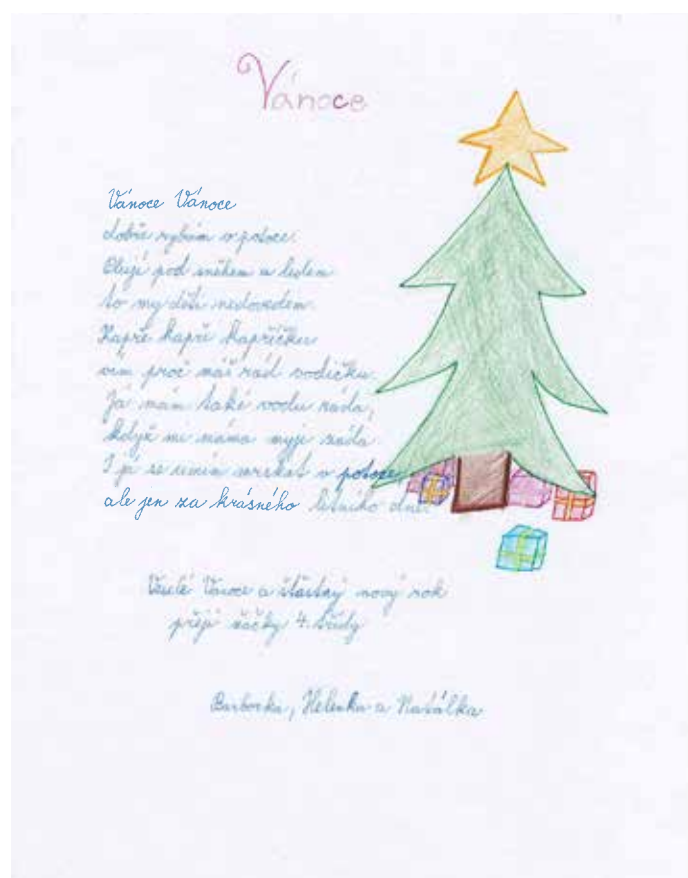 Vánoce
Vánoce Vánoce
dobře rybám v potoce.
Olují pod sněhem a ledem
to my děti nedovedem.
Kapře kapře kapříčku
vím proč máš rád vodičku.
Já mám také vodu ráda,
když mi máma myje záda.
I já se umím mrskat v potoce
ale jen za krásného letního dne.
Veselé Vánoce a šťastný nový rok
přejí žačky 4. třídy
Barborka, Helenka a Natálka